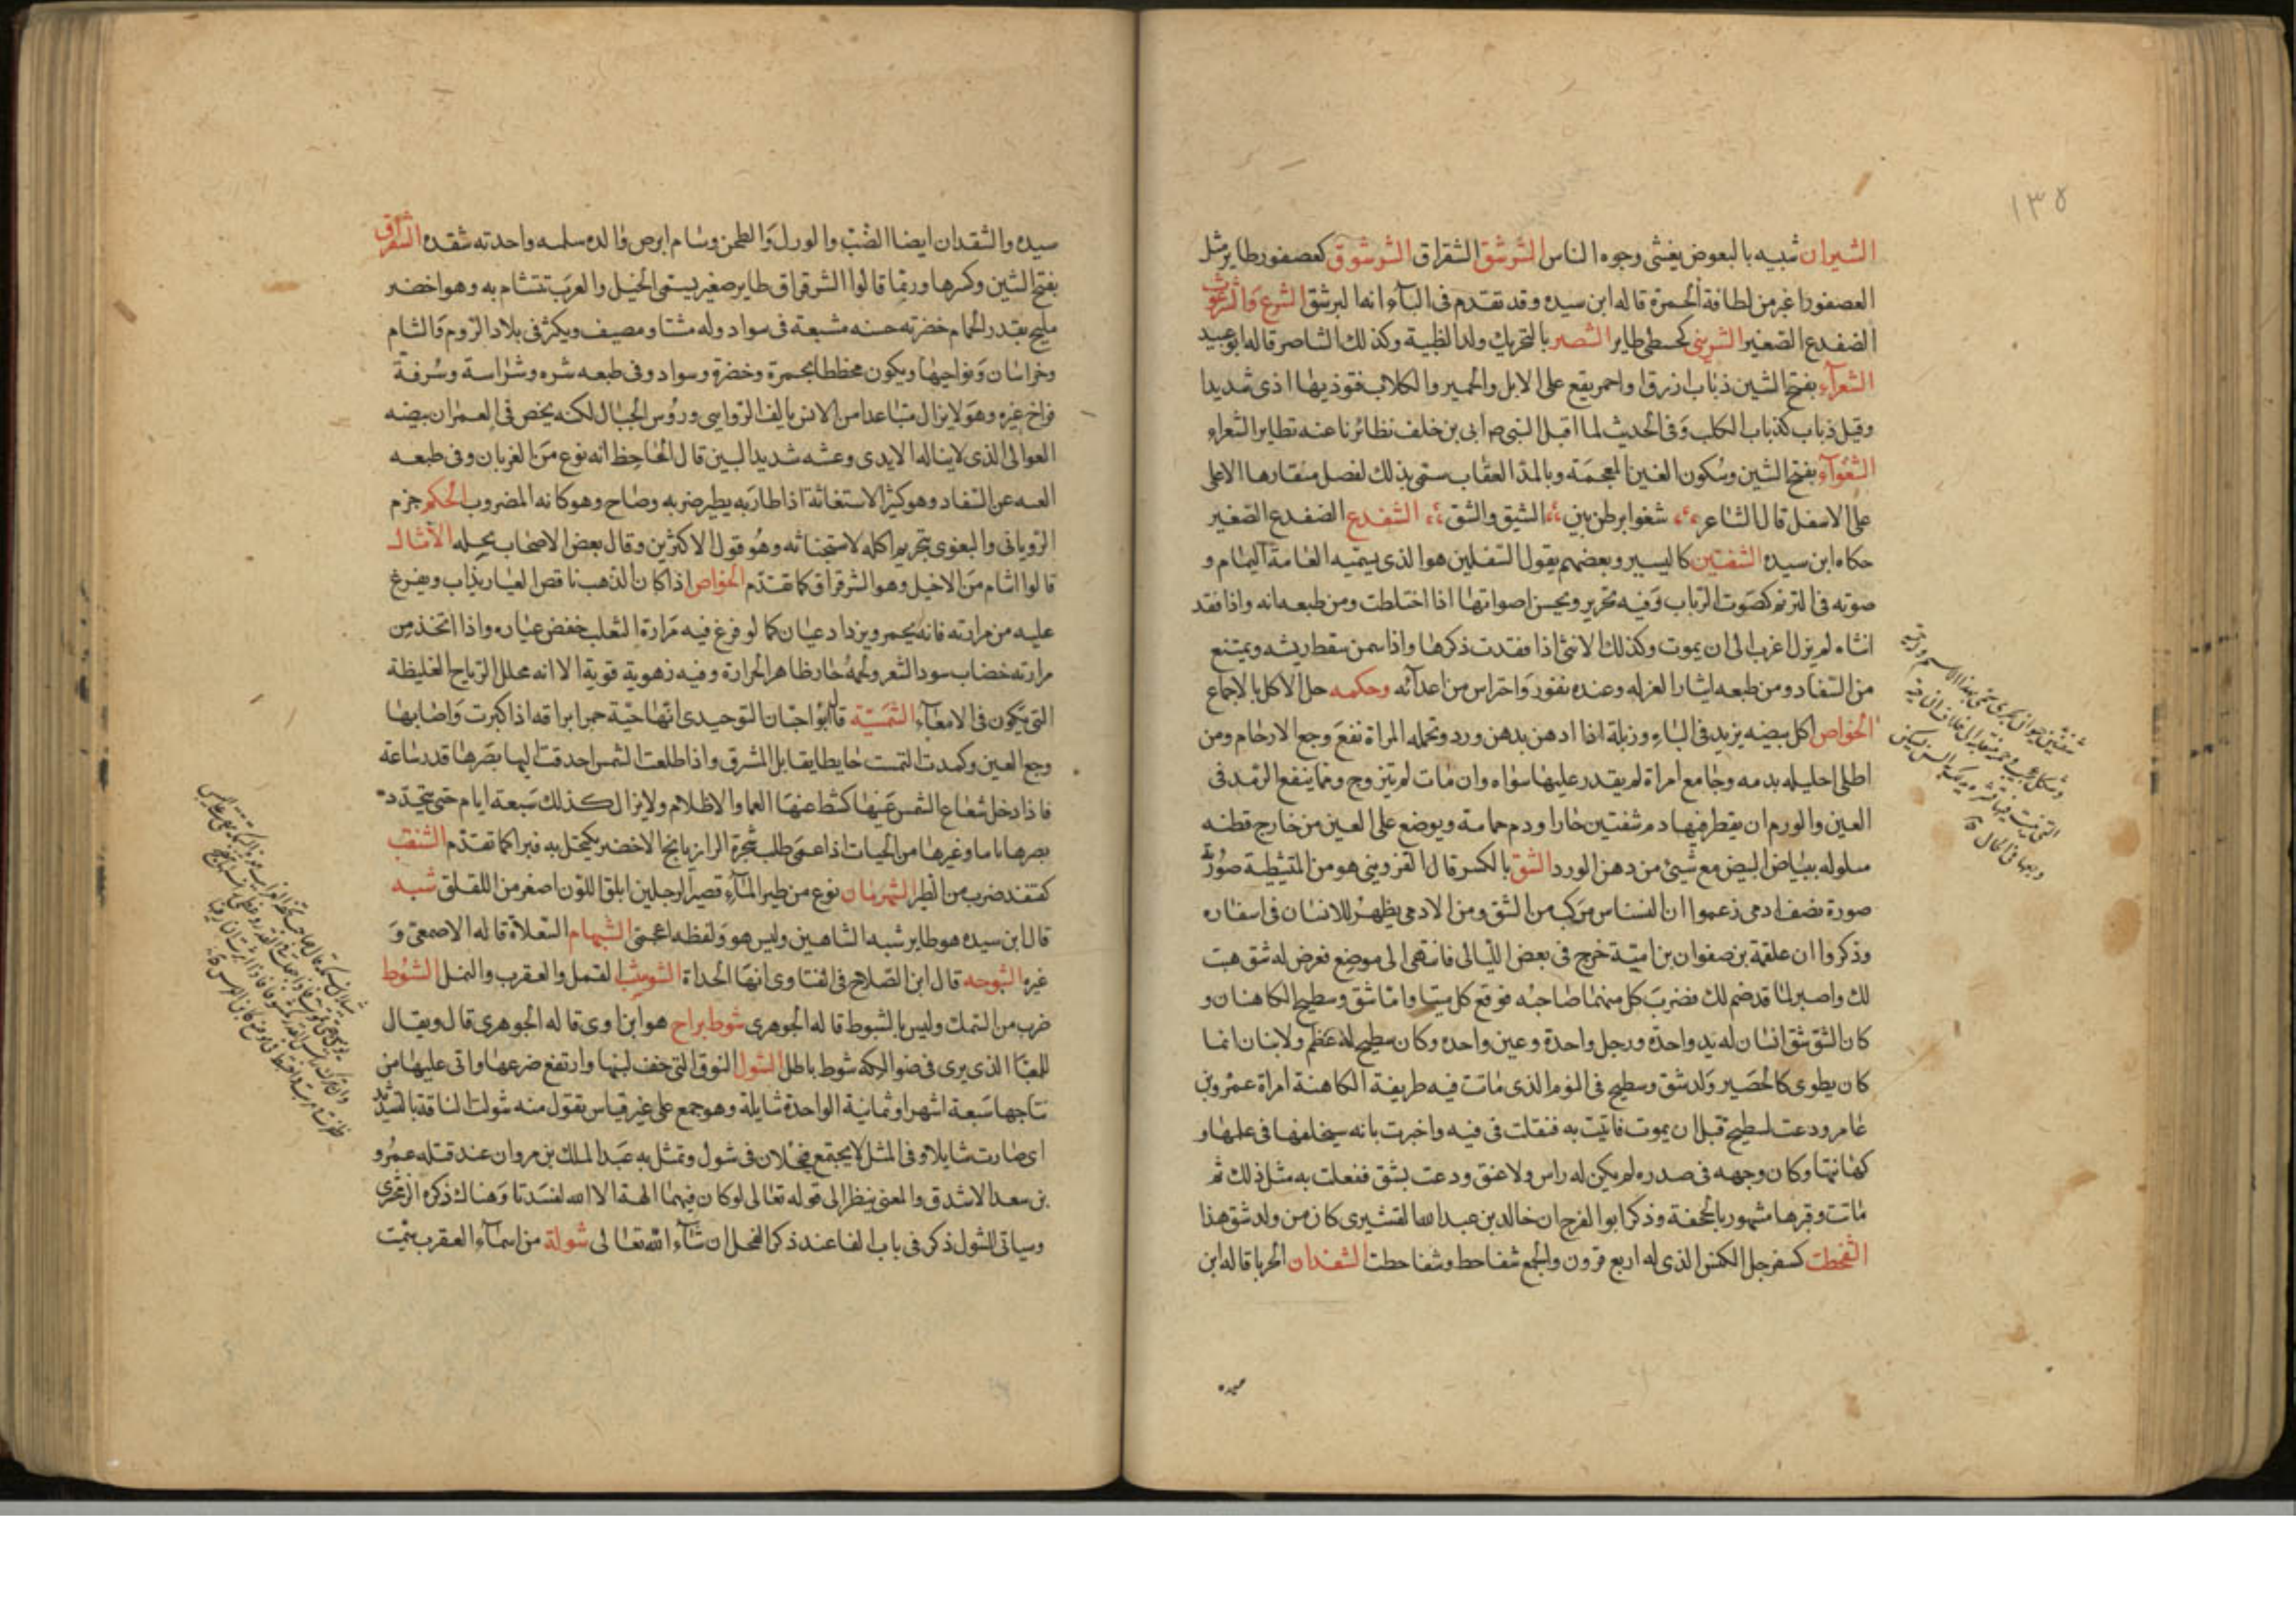 ١٣٥
الشيران شبيه بالبعوض يغشى وجوه الناس الشرشق الشقراق الشرشوق كعصفور طاير مثل
العصفور اغبر من لطافة الحمرة قاله ابن سيده وقد تقدم فى البآء انه البرشق الشرع والشرغوب
الضفدع الصغير الشرنبى كحبنطى طاير الشصر بالتحريك ولد الظبية وكذلك الشاصر قاله ابو عبيد
الشعرآء بفتح الشين ذباب ازرق او احمر يقع على الابل والحمير والكلاب فتوذيها اذى شديدا
وقيل ذباب كذباب الكلب وفى الحديث لما اقبل النبى ص ابى بن خلف تطائرنا عنه تطاير الشعراء
الشغوآء بفتح الشين وسكون الغين المعجمة وبالمد العقاب ستمى بذلك لفضل منقارها الاعلى
على الاسفل قال الشاعر شغوا بوطن بين الشيق والشق الشفدع الضفدع الصغير
حكاه ابن سيده الشفنين كاليسير وبعضهم يقول الشفلين هو الذى يسميه العامة اليمام و
صوته فى الترنم كصوت الرباب وفيه تحزير ويحسن اصواتها اذا اختلطت ومن طبعه انه واذا فقد
انثاه لم يزل اعزب الى ان يموت وكذلك الانثى اذا فقدت ذكرها واذا سمن سقط ريشه ويمتنع
من السفاد ومن طبعه ايثار العزله وعنده نفور واحتراس من اعدآئه وحكمه حل الاكل بالاجماع
الخواص اكل بيضه يزيد فى الباء وزبلة اذا ادهن بدهن ورد وتحمله المراة نفع وجع الارحام ومن
اطلى احليله بدمه وجامع امراة لم يقدر عليها سواه وان مات لم يتزوج ومما ينفع الرمد فى
العين والورم ان يقطر فيها دم شفنين حارا ودم حمامة ويوضع على العين من خارج قطنه
مبلوله ببياض البيض مع شيئ من دهن الورد الشق بالكسر قال القزوينى هو من المتشيطنة صورته
صورة نصف ادمى زعموا ان النسناس مركب من الشق ومن الادمى يظهر للانسان فى اسفاره
وذكروا ان علقمة بن صفوان بن امية خرج فى بعض الليالى فانتهى الى موضع فعرض له شق هبت
لك واصبر لما قد ضم لك فضرب كل منهما صاحبه فوقع كل ميتا واما شق وسطيح الكاهنان و
كان الشق شق انسان له يد واحدة ورجل واحدة وعين واحده وكان سطيح له عظم ولا بنان انما
كان يطوى كالحصير ولد شق وسطيح فى اليوم الذى ماتت فيه طريفة الكاهنة امراة عمرو بن
عامر ودعت لسطيح قبل ان يموت فاتيت به فتفلت فى فيه واخبرت بانه سيخلفها فى علمها و
كهانتها وكان وجهه فى صدره لم يكن له راس ولا عنق ودعت بشق ففعلت به مثل ذلك ثم
ماتت وقبرها مشهور بالجحفة وذكر ابو الفرج ان خالد بن عبد الله القشيرى كان من ولد شق هذا
الشفحطت كسفرجل الكبش الذى له اربع قرون والجمع شفاحط وشفاحطت الشقدان الحربا قاله ابن
سيده
سيده والشقدان ايضا الضب والورل والطحن وسام ابرص والده سلمه واحدته شقده الشقراق
بفتح الشين وكسرها وربما قالوا الشرقراق طاير صغير يسمى الاخيل والعرب تتشام به وهو اخضر
مليح بقدر الحمام خضرته حسنه مشبعة فى سواد وله مشتا ومصيف ويكثر فى بلاد الروم والشام
وخراسان ونواحيها ويكون مخططا بحمرة وخضرة وسواد وفى طبعه شره وشراسة وسرقة
فراخ غيره وهو لا يزال متباعدا من الانس يالف الروابى ورؤس الجبال لكنه يحض فى العمران بيضه
العوالى الذى لايناله الايدى وعشه شديد البين قال الجاحظ انه نوع من الغربان وفى طبعه
العسه عن السفاد وهو كثير الاستغاثة اذا طاربه يطير ضربه وصاح وهو كانه المضروب الحكم جزم
الرويانى والبغوى بتحريم اكله لاستخباثه وهو قول الاكثرين وقال بعض الاصحاب بحله الامثال
قالوا اشام من الاخيل وهو الشرقراق كما تقدم الخواص اذا كان الذهب ناقص العيار يذاب ويفرغ
عليه من مرارته فانه يحمر ويزداد عيان كما لو فرغ فيه مرارة الثعلب خفض عياره واذا اتخذ من
مرارته خضاب سود الشعر ولحمه حار ظاهر الحرارة وفيه زهوية قوية الا انه محلل الرياح الغليظة
التى يتكون فى الامعآء الشمسية قال ابو حيان التوحيدى انها حية حمرا براقه اذا كبرت واصابها
وجع العين وكمدت التمست حايطا يقابل المشرق واذا طلعت الشمس احدقت اليها بصرها قدر ساعة
فاذا دخل شعاع الشمس عينها كشط عنها العما والاظلام ولا يزال كذلك سبعة ايام حتى يتجدد
بصرها تاما وغيرها من الحيات اذا عمى طلب شجرة الرازيانج الاخضر يكتحل به فبرا كما تقدم الشنقب
كقنفذ ضرب من الطير الشهرمان نوع من طير المآء قصير الرجلين ابلق اللون اصغر من اللقلق شبه
قال ابن سيده هو طاير شبه الشاهين وليس هو ولفظه اعجمى الشهام السعلاة قاله الاصمعى و
غيره الشوحه قال ابن الصلاح فى الفتاوى انها الحداة الشوشب القمل والعقرب والنمل الشوط
ضرب من السمك وليس بالشبوط قاله الجوهرى شوط براح هو ابن اوى قاله الجوهرى قال ويقال
للهبآ الذى يرى فى ضو الكوة شوط باطل الشول النوق التى خفف لبنها وارتفع ضرعها واتى عليها من
نتاجها سبعة اشهر او ثمانية الواحدة شايلة وهو جمع على غير قياس يقول منه شولت الناقة بالتشديد
اى صارت شايلا وفى المثل لايجتمع فحلان فى شول وتمثل به عبد الملك بن مروان عند قتله عمرو
بن سعد الاشدق والمعنى ينظر الى قوله تعالى لو كان فيهما الهة الا الله لفسدتا وهناك ذكره الزمخشرى
وسياتى للشول ذكر فى باب الفا عند ذكر الفحل ان شآء الله تعالى شولة من اسمآء العقرب سميت